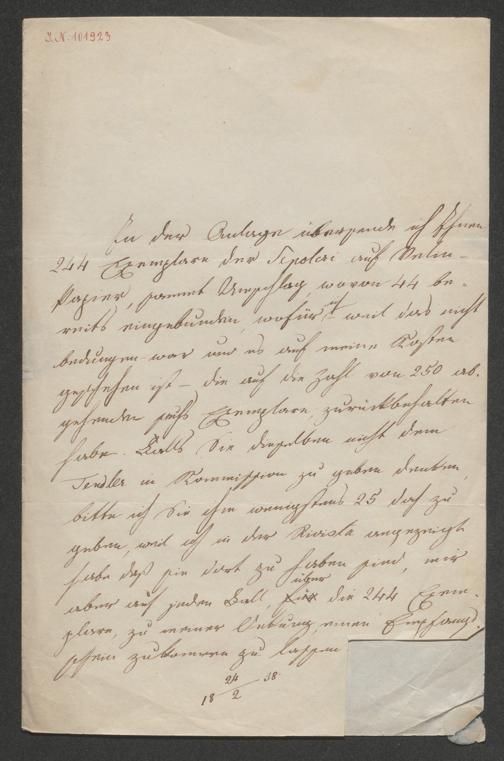 I.N. 101923
In der Anlage übersende ich Ihnen
244 Exemplare der Sepolcri auf Velin-
Papier, sammt Umschlag, wovon 44 be-
reits eingebunden, wofür ich weil das nicht
bedungen war und es auf meine Kosten
geschehen ist – die auf die Zahl von 250 ab-
gehenden sechs Exemplare, zurückbehalten
habe. Falls Sie dieselben nicht dem
Tendler in Kommission zu geben denken,
bitte ich Sie ihm wenigstens 25 doch zu
geben, weil ich in der Rivista angezeigt
habe daß sie dort zu haben sind, mir
aber auf jeden Fall, über die 244 Exem-
plare, zu meiner Deckung, einen Empfangs-
schein zukommen zu lassen
18 24/2 38